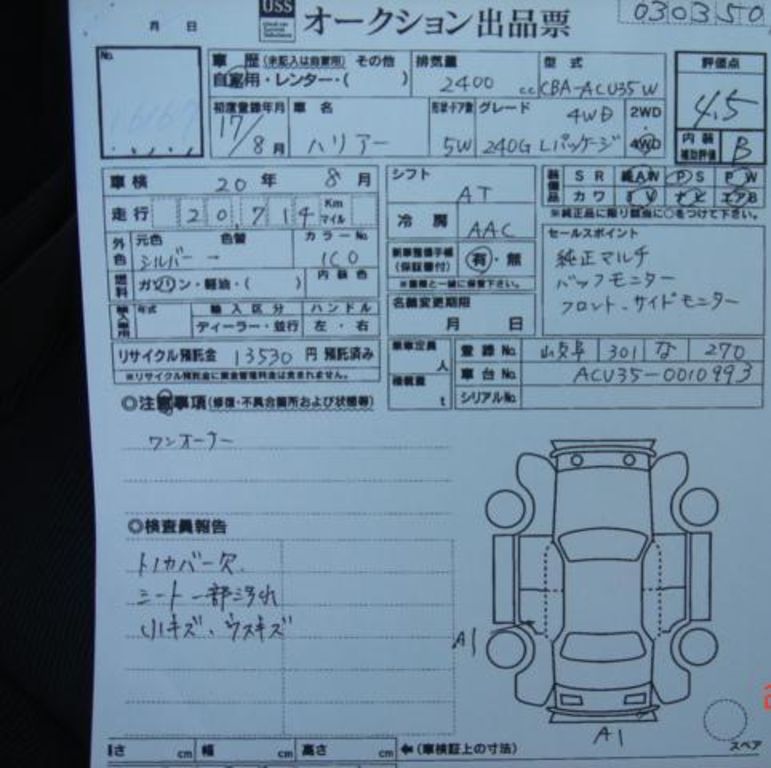 月 日
USS オークション出品票
0303510
No.
車歴(未記入は自家用) その他
自家用・レンター・( )
排気量 2400 cc
型式 CBA-ACU35W
評価点 4.5
初度登録年月 17/8月
車名 ハリアー
形状・ドア数 5W
グレード 4WD 240G Lパッケージ
2WD 4WD
内装補助評価 B
車検 20年 8月
シフト AT
装備品 S R 純A/W P S P W
カワ エアB
※純正品に限り該当に○をつけて下さい。
走行 20,714 Km マイル
冷房 AAC
外色 元色 色替 カラーNo.
シルバー → 1C0
新車整備手帳(保証書付) 有・無
※書類と一緒に保管下さい。
セールスポイント
純正マルチ
バックモニター
フロント、サイドモニター
燃料 ガソリン・軽油・( ) 内装色
名義変更期限 月 日
輸入車用 年式 輸入区分 ハンドル
ディーラー・並行 左・右
リサイクル預託金 13530 円 預託済み
※リサイクル預託金に資金管理料金は含まれません。
乗車定員 人
積載量 t
登録No. 301 な 270
車台No. ACU35-0010993
シリアルNo.
◎注意事項(修復・不具合箇所および状態等)
ワンオーナー
◎検査員報告
トノカバー欠.
シート一部汚れ
小キズ、ウスキズ
A1
A1
スペア
長さ cm 幅 cm 高さ cm ←(車検証上の寸法)